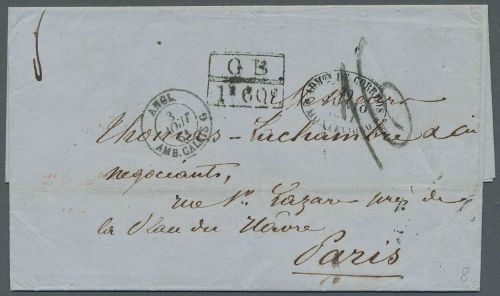 GB
1F 60c
ANGL.
3
AOUT
AMB. CALAIS G
ADMON DE CORREOS
Messieurs
Thomas Lachambre & Cie
negociants,
rue St. Lazare près de
la Place du Hâvre
Paris
8